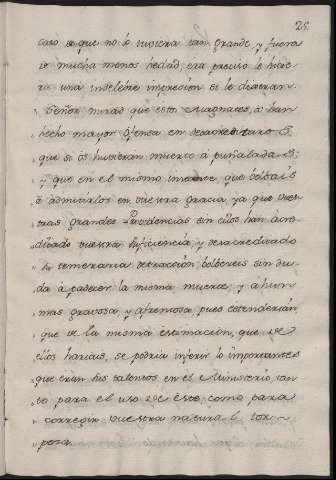 25
caso de que no lo huviera tan grande, y fuera
de mucha menos hedad, era preciso le hicie
ra una indeleble impresion si le dixeran.
Señor mirad que estos Magnates, os han
hecho mayor ofensa en desacreditaros
que si os huvieran muerto á puñaladas
y que en el mismo instante, que bolbais
á admitirlos en vuestra gracia, ya que vues
tras grandes Providencias sin ellos han acre
ditado vuestra suficiencia, y desacreditado
su temeraria detraccion, bolbereis sin du
da á padecer la misma muerte, y aun
mas gravosa y afrentosa, pues entenderian,
que de la misma estimacion, que de
ellos hariais, se podria inferir lo importantes
que eran sus talentos en el Ministerio, tan
to para el uso de éste como para
corregir vuestra natural tor-
peza.